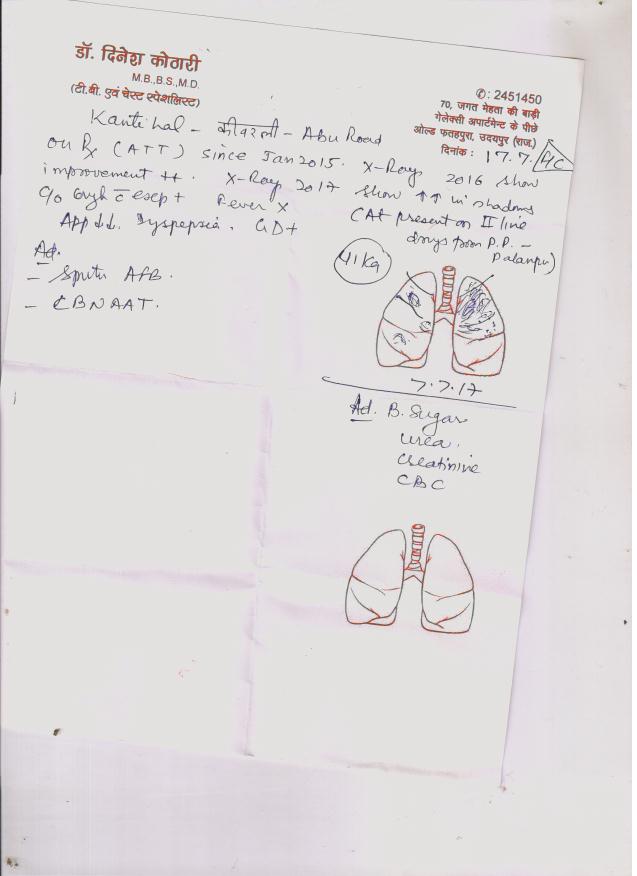 डॉ. दिनेश कोठारी
M.B.,B.S.,M.D.
(टी.बी. एवं चेस्ट स्पेशलिस्ट)
✆: 2451450
70, जगत मेहता की बाड़ी
गेलेक्सी अपार्टमेन्ट के पीछे
ओल्ड फतहपुरा, उदयपुर (राज.)
दिनांक : 17.7.
Kantilal - - Abu Road
on Rx (ATT) since Jan 2015. X-Ray 2016 show
improvement ++. X-Ray 2017 show ↑↑ in shadows
C/o Cough c̄ + Fever X
App ↓↓. Dyspepsia. GD+
CAT present on II line
drugs from P.P. -
Palanpur)
Ad.
- Sputu AFB.
- CBNAAT.
41 Kg
7.7.17
Ad. B. Sugar
Urea.
Creatinine
CBC